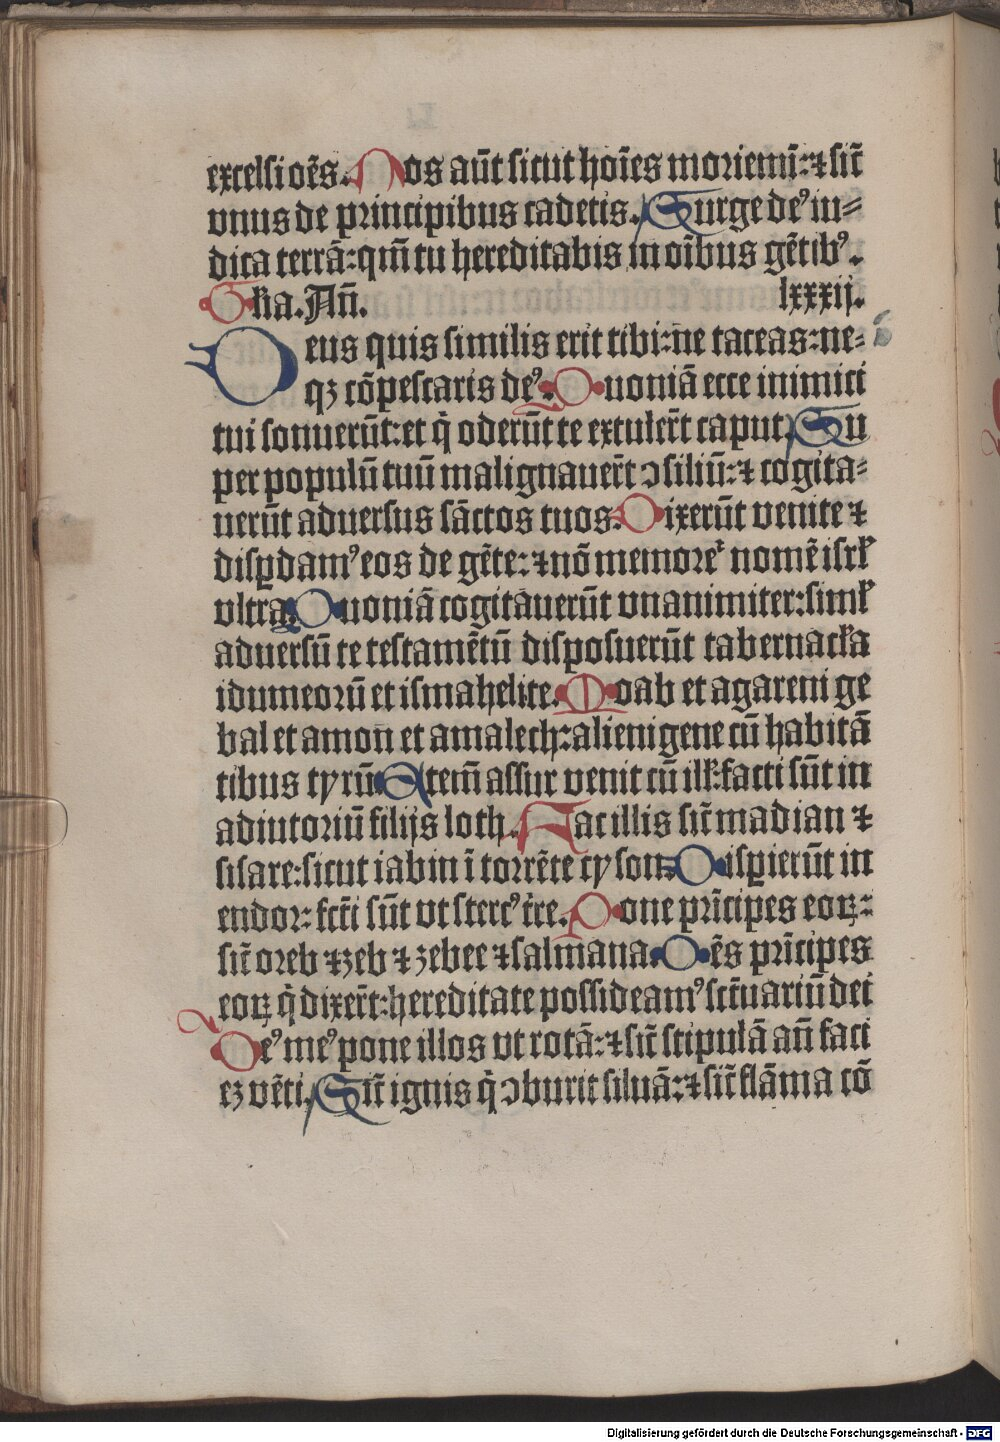 excelsi oēs. Nos aūt sicut hoīes moriemī: ⁊ sic̄
vnus de principibus cadetis. Surge deꝰ iu⸗
dica terrā: qm̄ tu hereditabis in oībus gētibꝰ.
Gl'ia. Añ. lxxxij.
Deus quis similis erit tibi: ne taceas: ne⸗
qꝫ cōpescaris deꝰ. Quoniā ecce inimici
tui sonuerūt: et q̇ oderūt te extuler̄t caput. Su
per populū tuū malignauer̄t ↄsiliū: ⁊ cogita⸗
uerūt aduersus sāctos tuos. Dixerūt venite ⁊
disꝑdamꝰ eos de gēte: ⁊ nō memoret᷑ nomē isrl'
vltra. Quoniā cogitauerūt vnanimiter: siml'
aduersū te testamētū disposuerūt tabernacl'a
idumeorū et ismahelite. Moab et agareni ge
bal et amon et amalech: alienigene cū habitā
tibus tyrū. Etem̄ assur venit cū ill': facti sūt in
adiutoriū filijs loth. Fac illis sic̄ madian ⁊
sisare: sicut iabin ī torrēte cyson. Disꝑierūt in
endor: fct̄i sūt vt stercꝰ t̄re. Pone pr̄icipes eoꝝ:
sic̄ oreb ⁊ zeb ⁊ zebee ⁊ salmana. Oēs pr̄icipes
eoꝝ q̇ dixer̄t: hereditate possideamꝰ sct̄uariū dei
Deꝰ meꝰ pone illos vt rotā: ⁊ sic̄ stipulā añ faci
eꝫ vēti. Sic̄ ignis q̇ ↄburit siluā: ⁊ sic̄ flāma cō
Digitalisierung gefördert durch die Deutsche Forschungsgemeinschaft - DFG